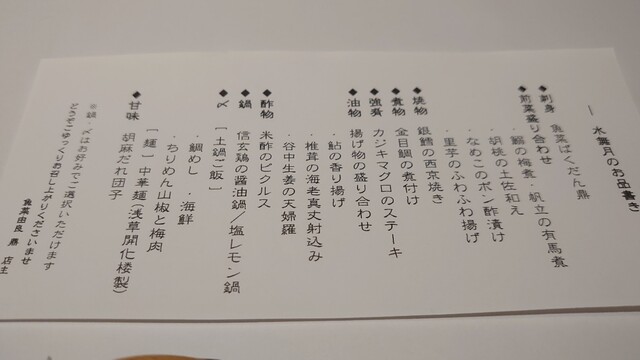 水無月のお品書き
◆刺身　魚菜ばくだん鼎
◆前菜盛り合わせ
・鰯の梅煮・帆立の有馬煮
・胡桃の土佐和え
・なめこのポン酢漬け
・里芋のふわふわ揚げ
◆焼物　銀鱈の西京焼き
◆煮物　金目鯛の煮付け
◆強肴　カジキマグロのステーキ
◆油物　揚げ物の盛り合わせ
・鮎の香り揚げ
・椎茸の海老真丈射込み
・谷中生姜の天婦羅
◆酢物　米酢のピクルス
◆鍋　信玄鶏の醤油鍋／塩レモン鍋
◆〆　[土鍋ご飯]
・鯛めし　・海鮮
・ちりめん山椒と梅肉
[麺]中華麺(浅草開化楼製)
◆甘味　胡麻だれ団子
※鍋・〆はお好みでご選択いただけます
どうぞごゆっくりお召し上がりくださいませ
魚菜由良　鼎　店主